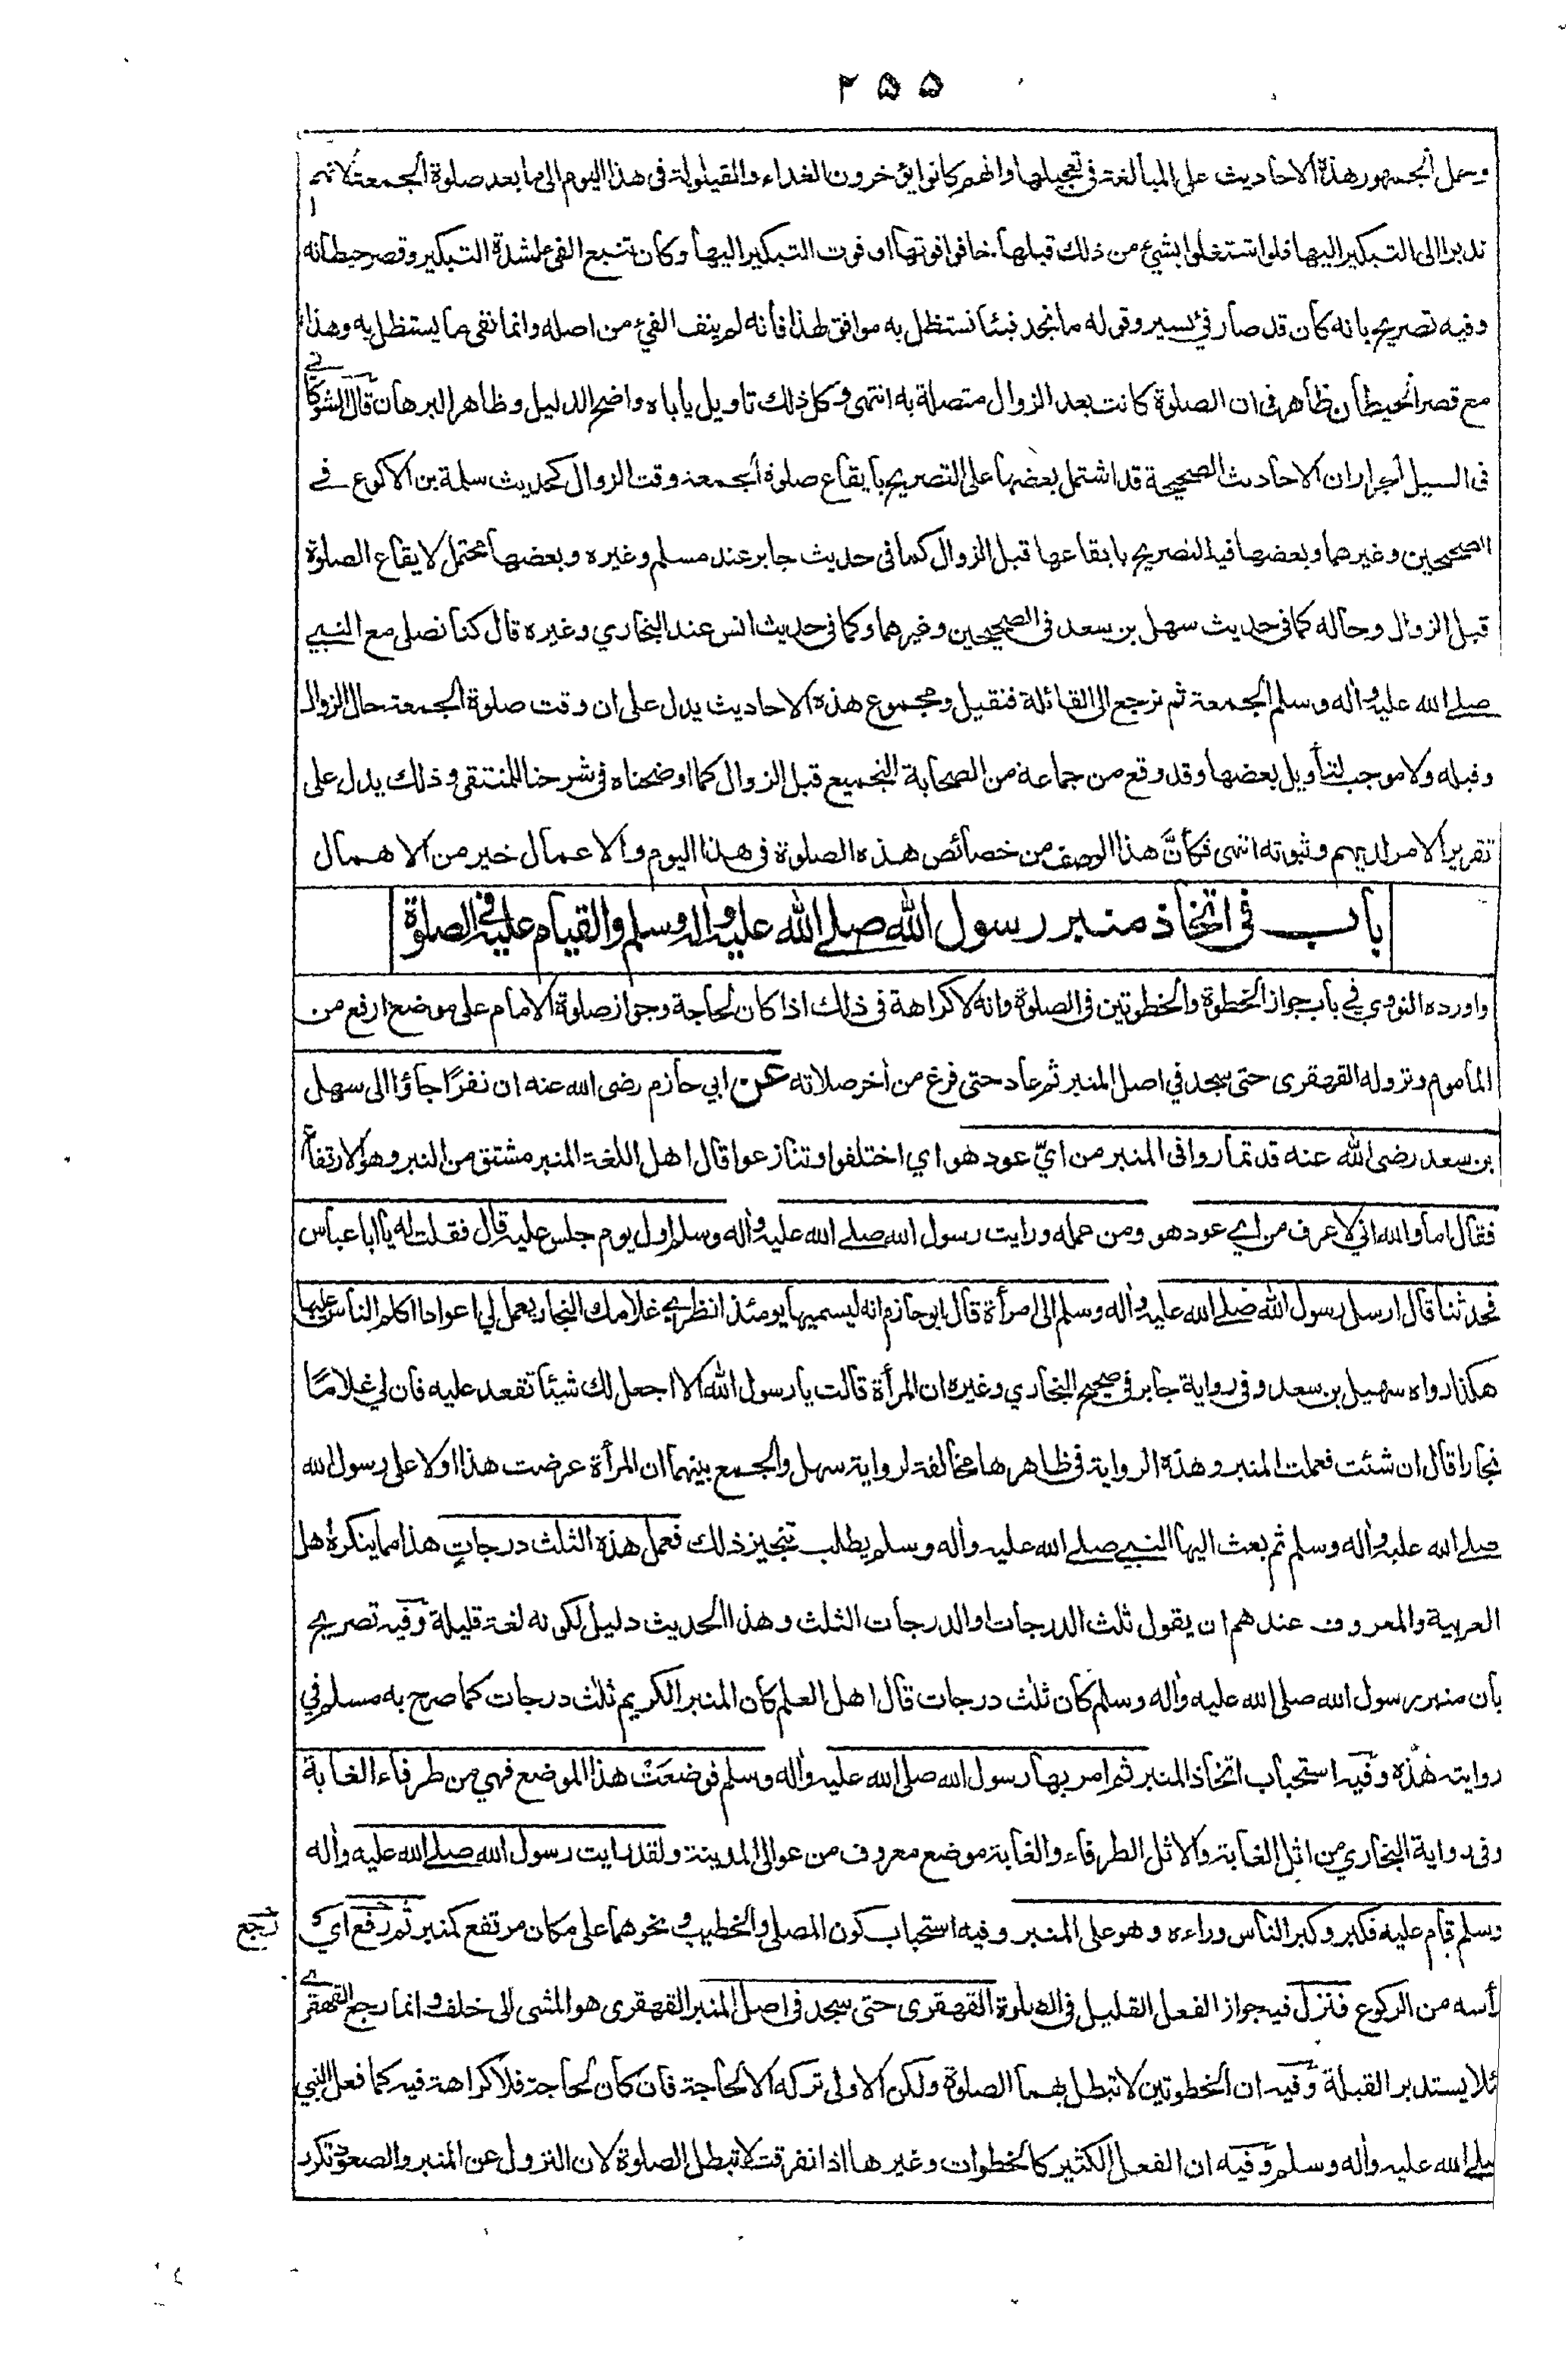 ۲۵۵
وحمل الجمهور هذه الاحاديث على المبالغة فى تعجيلها وانهم كانوا يؤخرون الغداء والقيلولة فى هذا اليوم الى ما بعد صلوة الجمعة لانهم
ندبوا الى التبكير اليها فلو اشتغلوا بشيئ من ذلك قبلها خافوا فوتها او فوت التبكير اليها وكان تتبع الفيئ لشدة التبكير وقصر حيطانه
وفيه تصريح بانه كان قد صار فيئ يسير وقوله ما نجد فيئا نستظل به موافق لهذا فانه لم ينف الفيئ من اصله وانما نفى ما يستظل به وهذا
مع قصر الحيطان ظاهر فى ان الصلوة كانت بعد الزوال متصلة به انتهى وكل ذلك تاويل يأباه واضح الدليل وظاهر البرهان قال الشوكانے
فى السيل الجرار ان الاحاديث الصحيحة قد اشتمل بعضها على التصريح بايقاع صلوة الجمعة وقت الزوال كحديث سلمة بن الاكوع فے
الصحيحين وغيرهما وبعضها فيه التصريح بايقاعها قبل الزوال كما فى حديث جابر عند مسلم وغيره وبعضها محتمل لايقاع الصلوة
قبل الزوال وحاله كما فى حديث سهل بن سعد فى الصحيحين وغيرهما وكما فى حديث انس عند البخاري وغيره قال كنا نصلى مع النبے
صلے الله عليه واٰله وسلم الجمعة ثم نرجع الى القائلة فنقيل ومجموع هذه الاحاديث يدل على ان وقت صلوة الجمعة حال الزوال
وقبله ولا موجب لتأويل بعضها وقد وقع من جماعة من الصحابة التجميع قبل الزوال كما اوضحناه فى شرحنا للمنتقى وذلك يدل على
تقرير الامر لديهم وثبوته انتهى فكأنَّ هذا الوصف من خصائص هذه الصلوة فى هذا اليوم والاعمال خير من الاهمال
باب فى اتخاذ منبر رسول الله صلے الله عليه واٰله وسلم والقيام عليه فى الصلوة
واورده النووي فے باب جواز الخطوة والخطوتين فى الصلوة وانه لا كراهة فى ذلك اذا كان لحاجة وجواز صلوة الامام على موضع ارفع من
المأموم ونزوله القهقرى حتى سجد في اصل المنبر ثم عاد حتى فرغ من اٰخر صلاته عن ابي حازم رضى الله عنه ان نفرًا جاؤا الى سهل
بن سعد رضى الله عنه قد تماروا فى المنبر من ايّ عود هو اي اختلفوا وتنازعوا قال اهل اللغة المنبر مشتق من النبر وهو الارتفاع
فقال اما والله اني لاعرف من اے عود هو ومن عمله ورايت رسول الله صلے الله عليه واٰله وسلم اول يوم جلس عليه قال فقلت له يا ابا عباس
فحدثنا قال ارسل رسول الله صلے الله عليه واٰله وسلم الى امرأة قال ابو حازم انه ليسميها يومئذ انظرے غلامك النجار يعمل لي اعوادا اكلم الناس عليها
هكذا رواه سهيل بن سعد وفى رواية جابر فى صحيح البخاري وغيره ان المرأة قالت يا رسول الله الا اجعل لك شيئا تقعد عليه فان لى غلامًا
نجارا قال ان شئت فعملت المنبر وهذه الرواية فى ظاهرها مخالفة لرواية سهل والجمع بينهما ان المرأة عرضت هذا اولا على رسول الله
صلے الله عليه واٰله وسلم ثم بعث اليها النبے صلے الله عليه واٰله وسلم يطلب تنجيز ذلك فعمل هذه الثلث درجاتٍ هذا مما ينكره اهل
العربية والمعروف عندهم ان يقول ثلث الدرجات او الدرجات الثلث وهذا الحديث دليل لكونه لغة قليلة وفيه تصريح
بان منبر رسول الله صلى الله عليه واٰله وسلم كان ثلث درجات قال اهل العلم كان المنبر الكريم ثلث درجات كما صرح به مسلم في
روايته هٰذه وفيه استحباب اتخاذ المنبر ثم امر بها رسول الله صلى الله عليه واٰله وسلم فوضعَتْ هذا الموضع فهي من طرفاء الغابة
وفى رواية البخاري من اثل الغابة والاثل الطرفاء والغابة موضع معروف من عوالى المدينة ولقد رايت رسول الله صلے الله عليه واٰله
وسلم قام عليه فكبر وكبر الناس وراءه وهو على المنبر وفيه استحباب كون المصلى والخطيب ونحوهما على مكان مرتفع كمنبر ثم رفع اي
رجع
رأسه من الركوع فنزل فيه جواز الفعل القليل فى الصلوة القهقرى حتى سجد فى اصل المنبر القهقرى هو المشى الى خلف وانما رجع القهقرے
لئلا يستدبر القبلة وفيه ان الخطوتين لا تبطل بهما الصلوة ولكن الاولى تركه الا لحاجة فان كان لحاجة فلا كراهة فيه كما فعل النبي
صلے الله عليه واٰله وسلم وفيه ان الفعل الكثير كالخطوات وغيرها اذا تفرقت لا تبطل الصلوة لان النزول عن المنبر والصعود تكرر